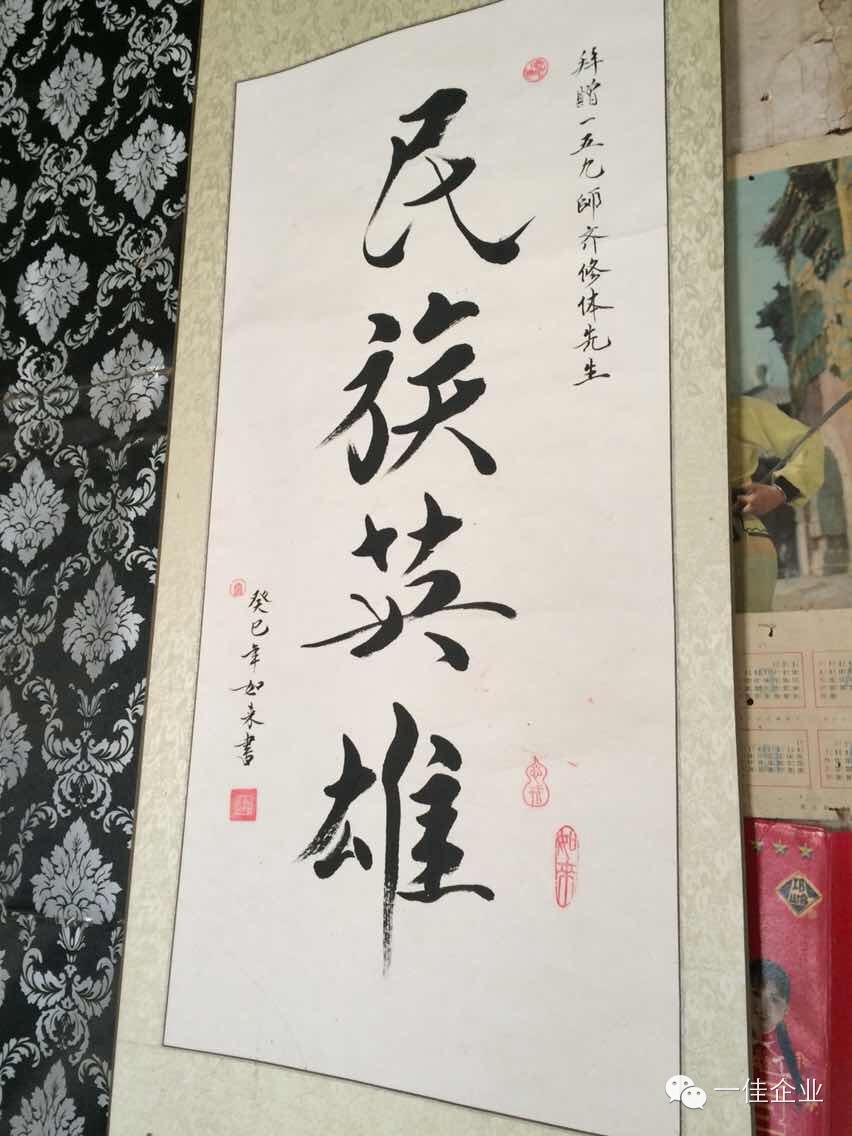 拜贈一五九師齐修体先生
民族英雄
癸巳年如来書
如来
一佳企业